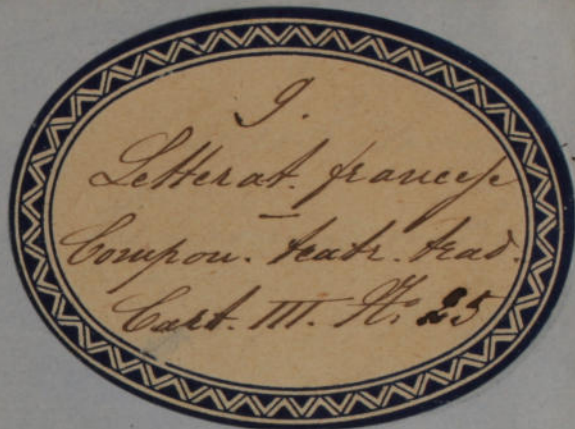 I.
Letterat. francese
—
Compon. teatr. trad.
Cart. III. No. 25